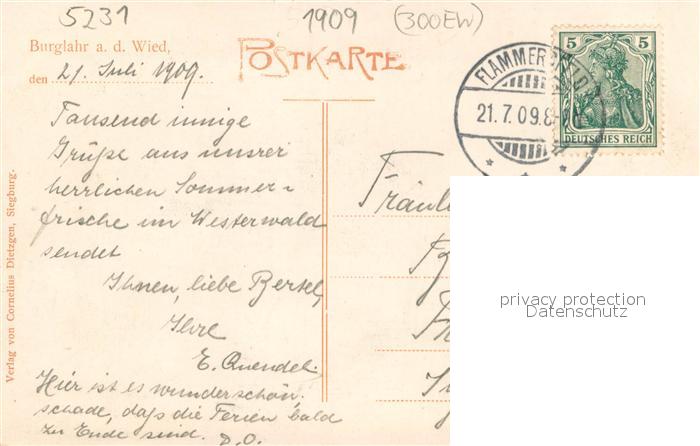 5231
1909
(300EW)
Burglahr a. d. Wied,
POSTKARTE
den 21. Juli 1909.
5 5
DEUTSCHES REICH
21.7.09.8-
Tausend innige
Grüße aus unsrer
herrlichen Sommer-
frische im Westerwald
sendet
Ihnen, liebe Bertel,
Ihre
E. Quendel.
Hier ist es wunderschön.
schade, daß die Ferien bald
zu Ende sind. D.O.
Verlag von Cornelius Dietzgen, Siegburg.
privacy protection
Datenschutz